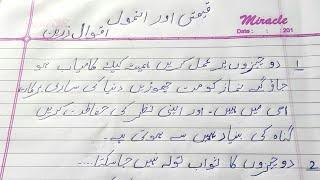 قیمتی اور انمول
اقوال زریں
Miracle
Date : : 201
1 دو چیزوں پر عمل کریں ہمیشہ کیلئے کامیاب ہو
جاؤ گے نماز کو مت چھوڑیں دنیا کی ساری برکات
اسی میں ہیں۔ اور اپنی نظر کی حفاظت کریں
گناہ کی بنیاد یہیں سے ہوتی ہے۔
2 دو چیزوں کا ثواب تولہ نہیں جا سکتا....